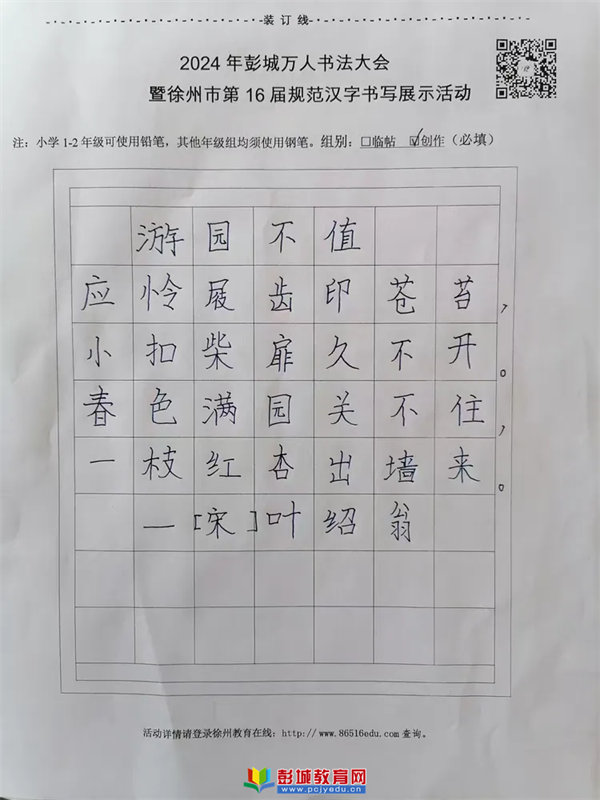 装 订 线
2024 年彭城万人书法大会
暨徐州市第 16 届规范汉字书写展示活动
注：小学 1-2 年级可使用铅笔，其他年级组均须使用钢笔。组别：□临帖 ☑创作（必填）
游园不值
应怜屐齿印苍苔，
小扣柴扉久不开。
春色满园关不住，
一枝红杏出墙来。
—[宋]叶绍翁
活动详情请登录徐州教育在线：http://www.86516edu.com 查询。
彭城教育网
www.pcjyedu.cn